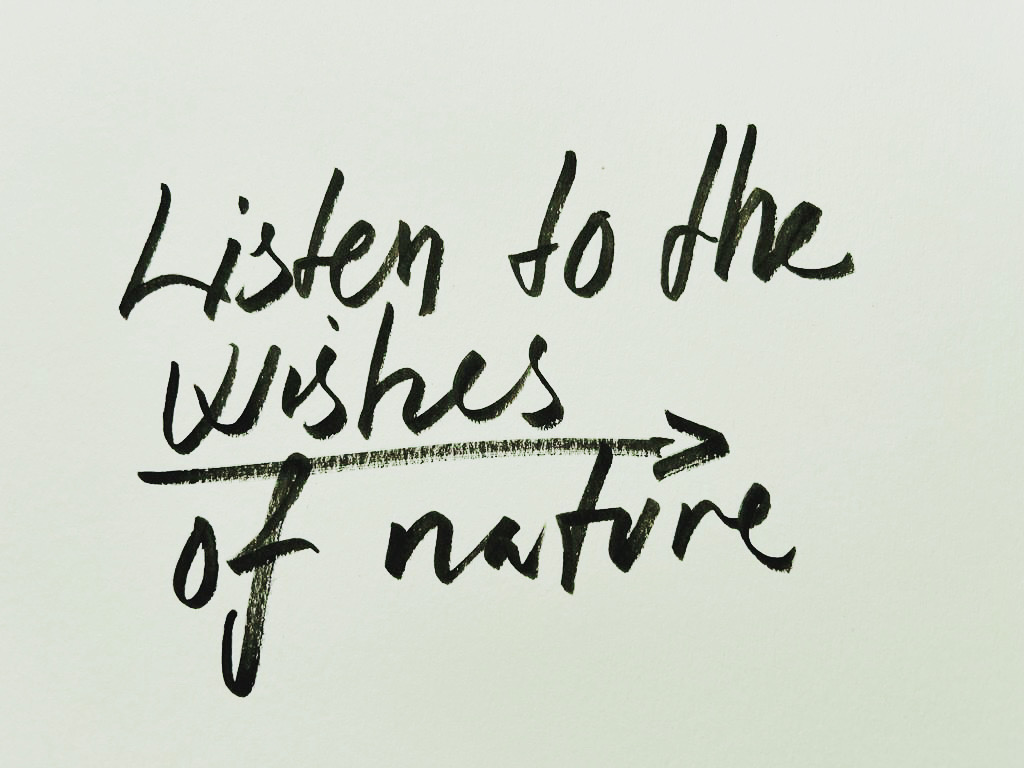 Listen to the
wishes
of nature